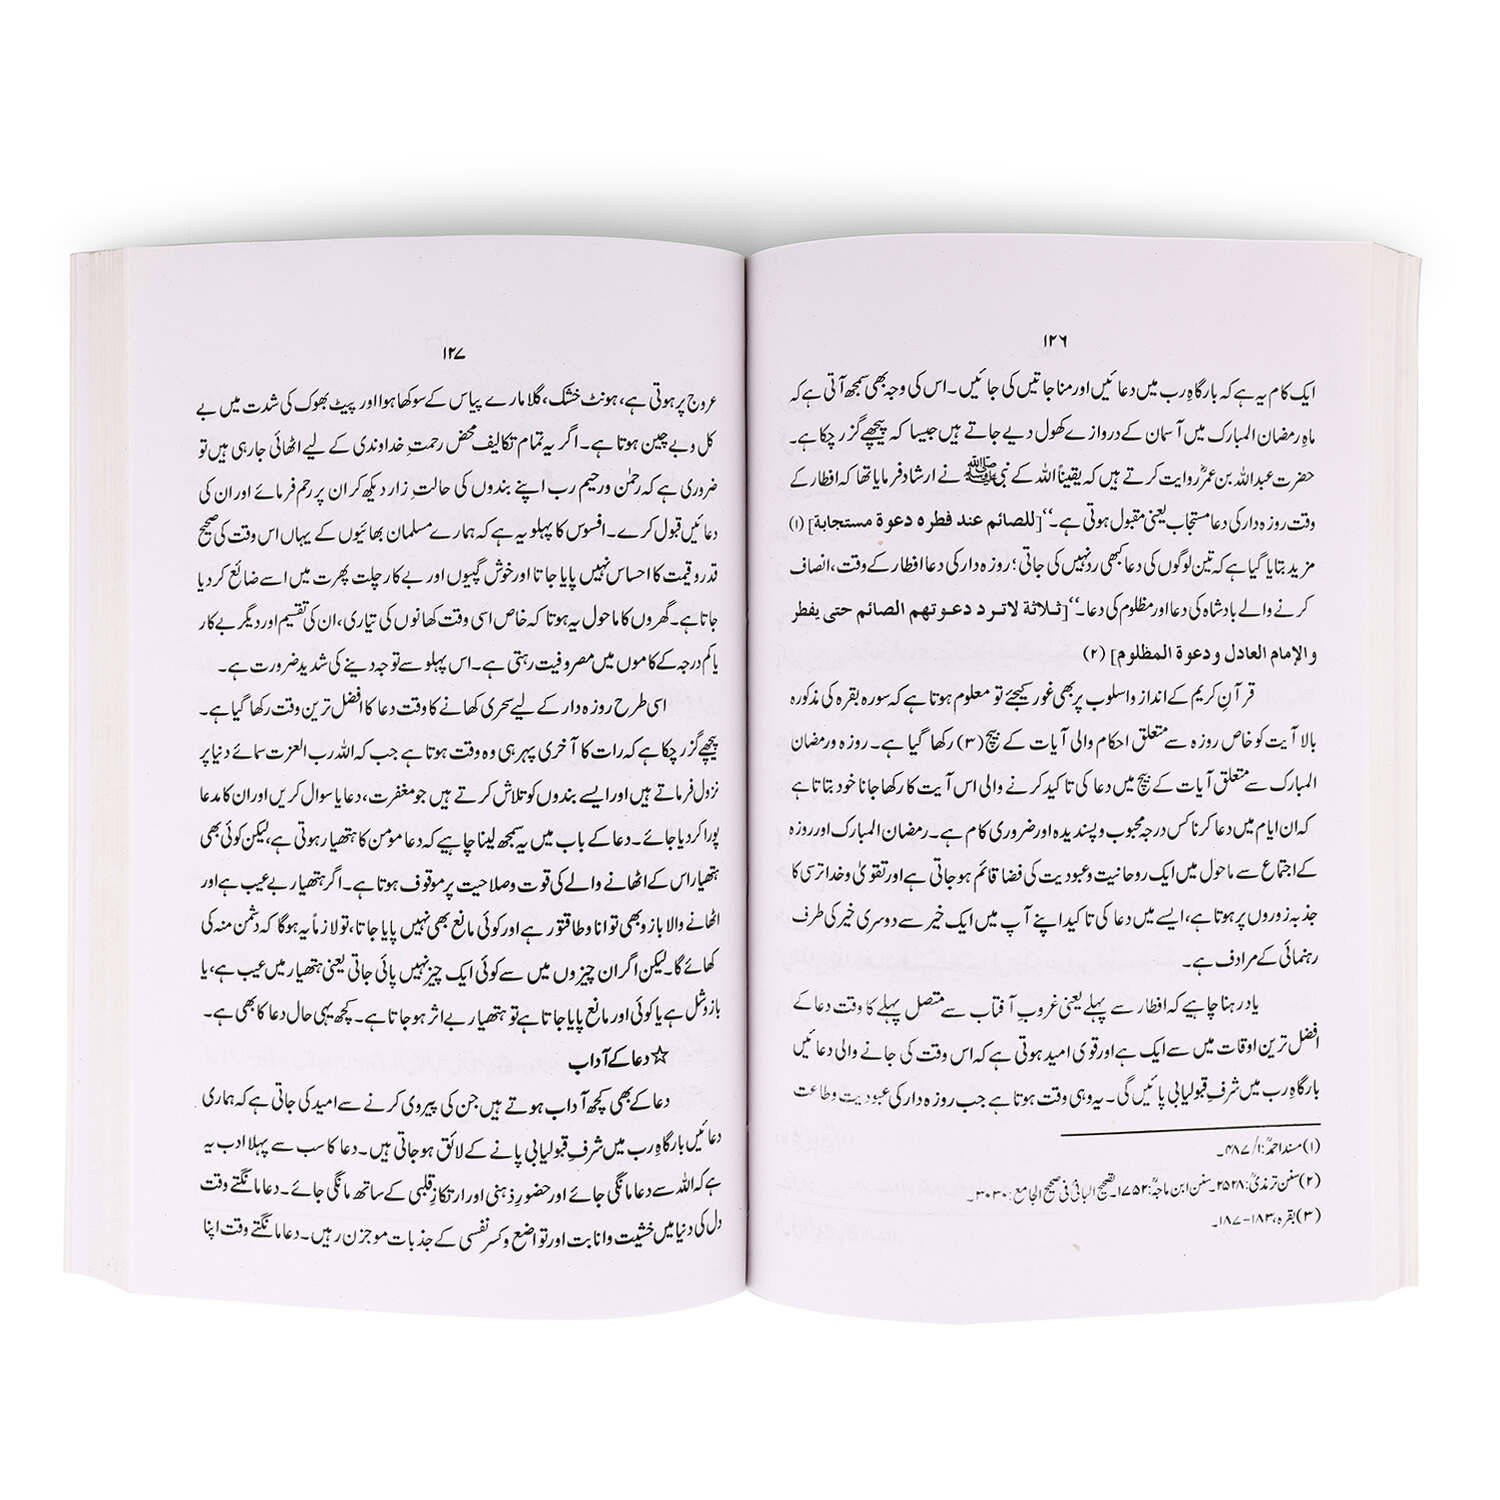 ۱۲۶
ایک کام یہ ہے کہ بارگاہِ رب میں دعائیں اور مناجاتیں کی جائیں۔ اس کی وجہ بھی سمجھ آتی ہے کہ
ماہِ رمضان المبارک میں آسمان کے دروازے کھول دیے جاتے ہیں جیسا کہ پیچھے گزر چکا ہے۔
حضرت عبداللہ بن عمرؓ روایت کرتے ہیں کہ یقیناً اللہ کے نبی ﷺ نے ارشاد فرمایا تھا کہ افطار کے
وقت روزہ دار کی دعا مستجاب یعنی مقبول ہوتی ہے۔‘‘ [للصائم عند فطره دعوة مستجابة] (۱)
مزید بتایا گیا ہے کہ تین لوگوں کی دعا کبھی رد نہیں کی جاتی؛ روزہ دار کی دعا افطار کے وقت، انصاف
کرنے والے بادشاہ کی دعا اور مظلوم کی دعا۔‘‘ [ثلاثة لاترد دعوتهم الصائم حتى يفطر
والإمام العادل ودعوة المظلوم] (۲)
قرآنِ کریم کے انداز واسلوب پر بھی غور کیجئے تو معلوم ہوتا ہے کہ سورہ بقرہ کی مذکورہ
بالا آیت کو خاص روزہ سے متعلق احکام والی آیات کے بیچ (۳) رکھا گیا ہے۔ روزہ ورمضان
المبارک سے متعلق آیات کے بیچ میں دعا کی تاکید کرنے والی اس آیت کا رکھا جانا خود بتاتا ہے
کہ ان ایام میں دعا کرنا کس درجہ محبوب وپسندیدہ اور ضروری کام ہے۔ رمضان المبارک اور روزہ
کے اجتماع سے ماحول میں ایک روحانیت وعبودیت کی فضا قائم ہو جاتی ہے اور تقویٰ وخدا ترسی کا
جذبہ زوروں پر ہوتا ہے، ایسے میں دعا کی تاکید اپنے آپ میں ایک خیر سے دوسری خیر کی طرف
رہنمائی کے مرادف ہے۔
یاد رہنا چاہیے کہ افطار سے پہلے یعنی غروبِ آفتاب سے متصل پہلے کا وقت دعا کے
افضل ترین اوقات میں سے ایک ہے اور قوی امید ہوتی ہے کہ اس وقت کی جانے والی دعائیں
بارگاہِ رب میں شرفِ قبولیابی پائیں گی۔ یہ وہی وقت ہوتا ہے جب روزہ دار کی عبودیت وطاعت
(۱) مسند احمدؒ: ۱/۴۸۷۔
(۲) سنن ترمذیؒ: ۲۵۲۸۔ سنن ابن ماجہؒ: ۱۷۵۲۔ تصحیح البانیؒ فی صحیح الجامع: ۳۰۳۰۔
(۳) بقرہ، ۱۸۳-۱۸۷۔
۱۲۷
عروج پر ہوتی ہے، ہونٹ خشک، گلا مارے پیاس کے سوکھا ہوا اور پیٹ بھوک کی شدت میں بے
کل وبے چین ہوتا ہے۔ اگر یہ تمام تکالیف محض رحمتِ خداوندی کے لیے اٹھائی جا رہی ہیں تو
ضروری ہے کہ رحمٰن ورحیم رب اپنے بندوں کی حالتِ زار دیکھ کر ان پر رحم فرمائے اور ان کی
دعائیں قبول کرے۔ افسوس کا پہلو یہ ہے کہ ہمارے مسلمان بھائیوں کے یہاں اس وقت کی صحیح
قدر وقیمت کا احساس نہیں پایا جاتا اور خوش گپیوں اور بے کار چلت پھرت میں اسے ضائع کر دیا
جاتا ہے۔ گھروں کا ماحول یہ ہوتا کہ خاص اسی وقت کھانوں کی تیاری، ان کی تقسیم اور دیگر بے کار
یا کم درجہ کے کاموں میں مصروفیت رہتی ہے۔ اس پہلو سے توجہ دینے کی شدید ضرورت ہے۔
اسی طرح روزہ دار کے لیے سحری کھانے کا وقت دعا کا افضل ترین وقت رکھا گیا ہے۔
پیچھے گزر چکا ہے کہ رات کا آخری پہر ہی وہ وقت ہوتا ہے جب کہ اللہ رب العزت سمائے دنیا پر
نزول فرماتے ہیں اور ایسے بندوں کو تلاش کرتے ہیں جو مغفرت، دعا یا سوال کریں اور ان کا مدعا
پورا کر دیا جائے۔ دعا کے باب میں یہ سمجھ لینا چاہیے کہ دعا مومن کا ہتھیار ہوتی ہے، لیکن کوئی بھی
ہتھیار اس کے اٹھانے والے کی قوت وصلاحیت پر موقوف ہوتا ہے۔ اگر ہتھیار بے عیب ہے اور
اٹھانے والا بازو بھی توانا وطاقتور ہے اور کوئی مانع بھی نہیں پایا جاتا، تو لازماً یہ ہوگا کہ دشمن منہ کی
کھائے گا۔ لیکن اگر ان چیزوں میں سے کوئی ایک چیز نہیں پائی جاتی یعنی ہتھیار میں عیب ہے، یا
بازو شل ہے یا کوئی اور مانع پایا جاتا ہے تو ہتھیار بے اثر ہو جاتا ہے۔ کچھ یہی حال دعا کا بھی ہے۔
☆ دعا کے آداب
دعا کے بھی کچھ آداب ہوتے ہیں جن کی پیروی کرنے سے امید کی جاتی ہے کہ ہماری
دعائیں بارگاہِ رب میں شرفِ قبولیابی پانے کے لائق ہو جاتی ہیں۔ دعا کا سب سے پہلا ادب یہ
ہے کہ اللہ سے دعا مانگی جائے اور حضورِ ذہنی اور ارتکازِ قلبی کے ساتھ مانگی جائے۔ دعا مانگتے وقت
دل کی دنیا میں خشیت وانابت اور تواضع وکسر نفسی کے جذبات موجزن رہیں۔ دعا مانگتے وقت اپنا